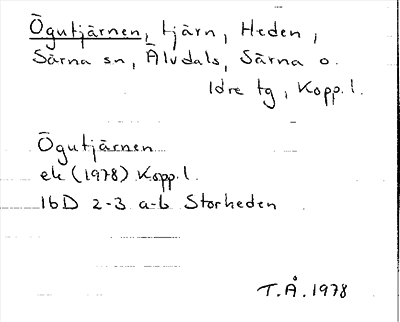 Ögutjärnen, tjärn, Heden,
Särna sn, Älvdals, Särna o.
Idre tg, Kopp.l.
Ögutjärnen
ek (1978) Kopp.l.
16D 2-3 a-b Storheden
T.Å. 1978